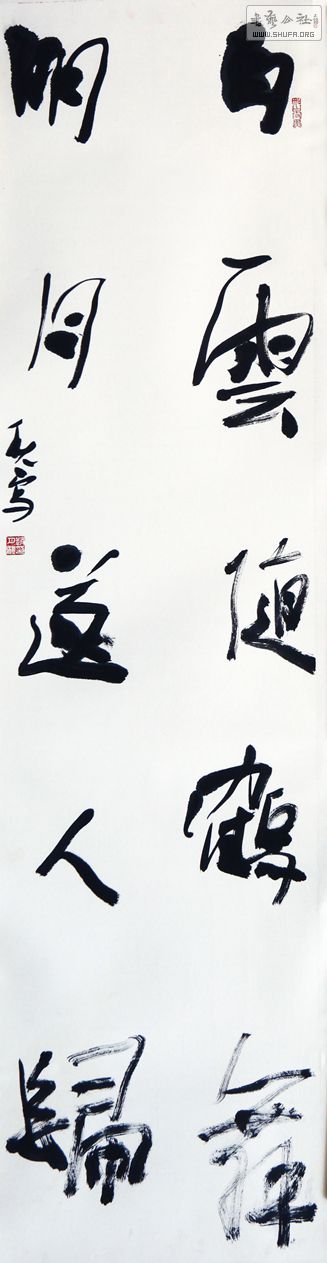 書藝公社
WWW.SHUFA.ORG
白雲随鶴舞
明月逐人歸